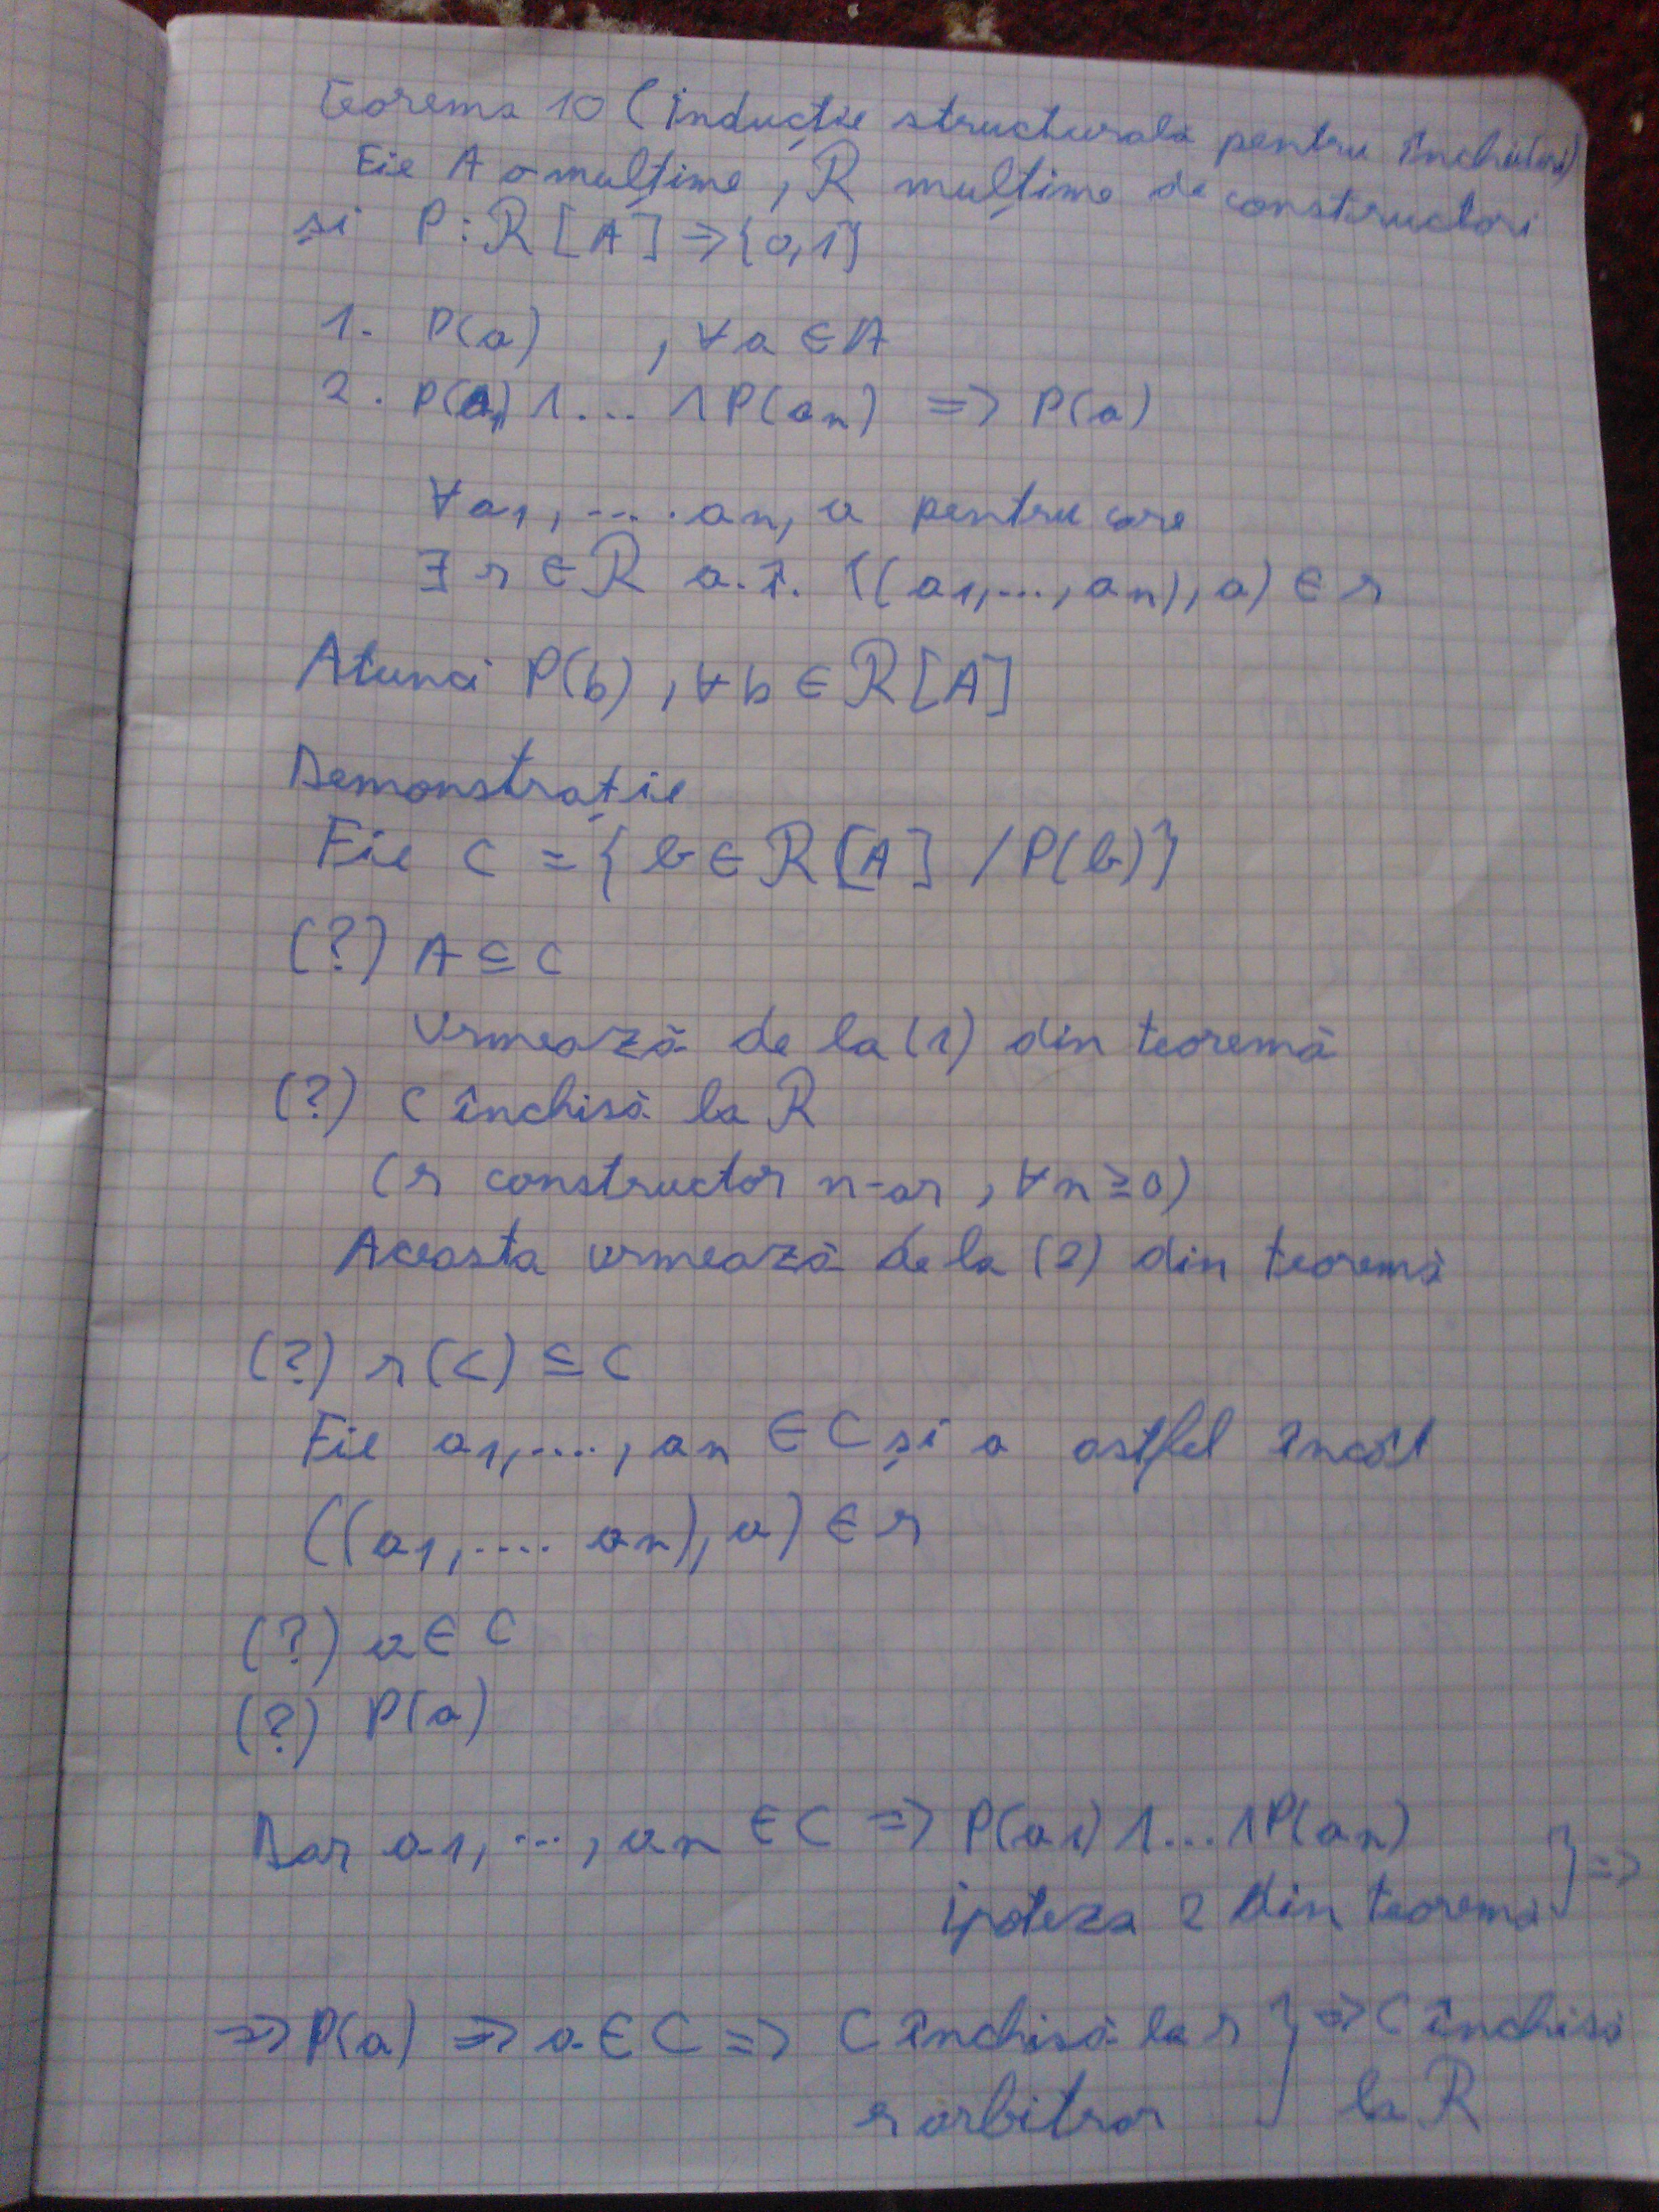 Teorema 10 (Inducție structurală pentru închideri)
Fie A o mulțime, R mulțime de constructori
și P: R[A] => {0,1}
1. P(a) , ∀a ∈ A
2. P(a1) ∧ ... ∧ P(an) => P(a)
∀a1, .... an, a pentru care
∃ r ∈ R a.î. ((a1,..., an), a) ∈ r
Atunci P(b), ∀b ∈ R[A]
Demonstrație
Fie C = { b ∈ R[A] / P(b)}
(?) A ⊆ C
Urmează de la (1) din teoremă
(?) C închisă la R
(r constructor n-ar, ∀n ≥ 0)
Aceasta urmează de la (2) din teoremă
(?) r(C) ⊆ C
Fie a1,...., an ∈ C și a astfel încât
((a1,.... an), a) ∈ r
(?) a ∈ C
(?) P(a)
Dar a1, ..., an ∈ C => P(a1) ∧ ... ∧ P(an) } =>
ipoteza 2 din teoremă
=> P(a) => a ∈ C => C închisă la r } => C închisă
r arbitrar la R